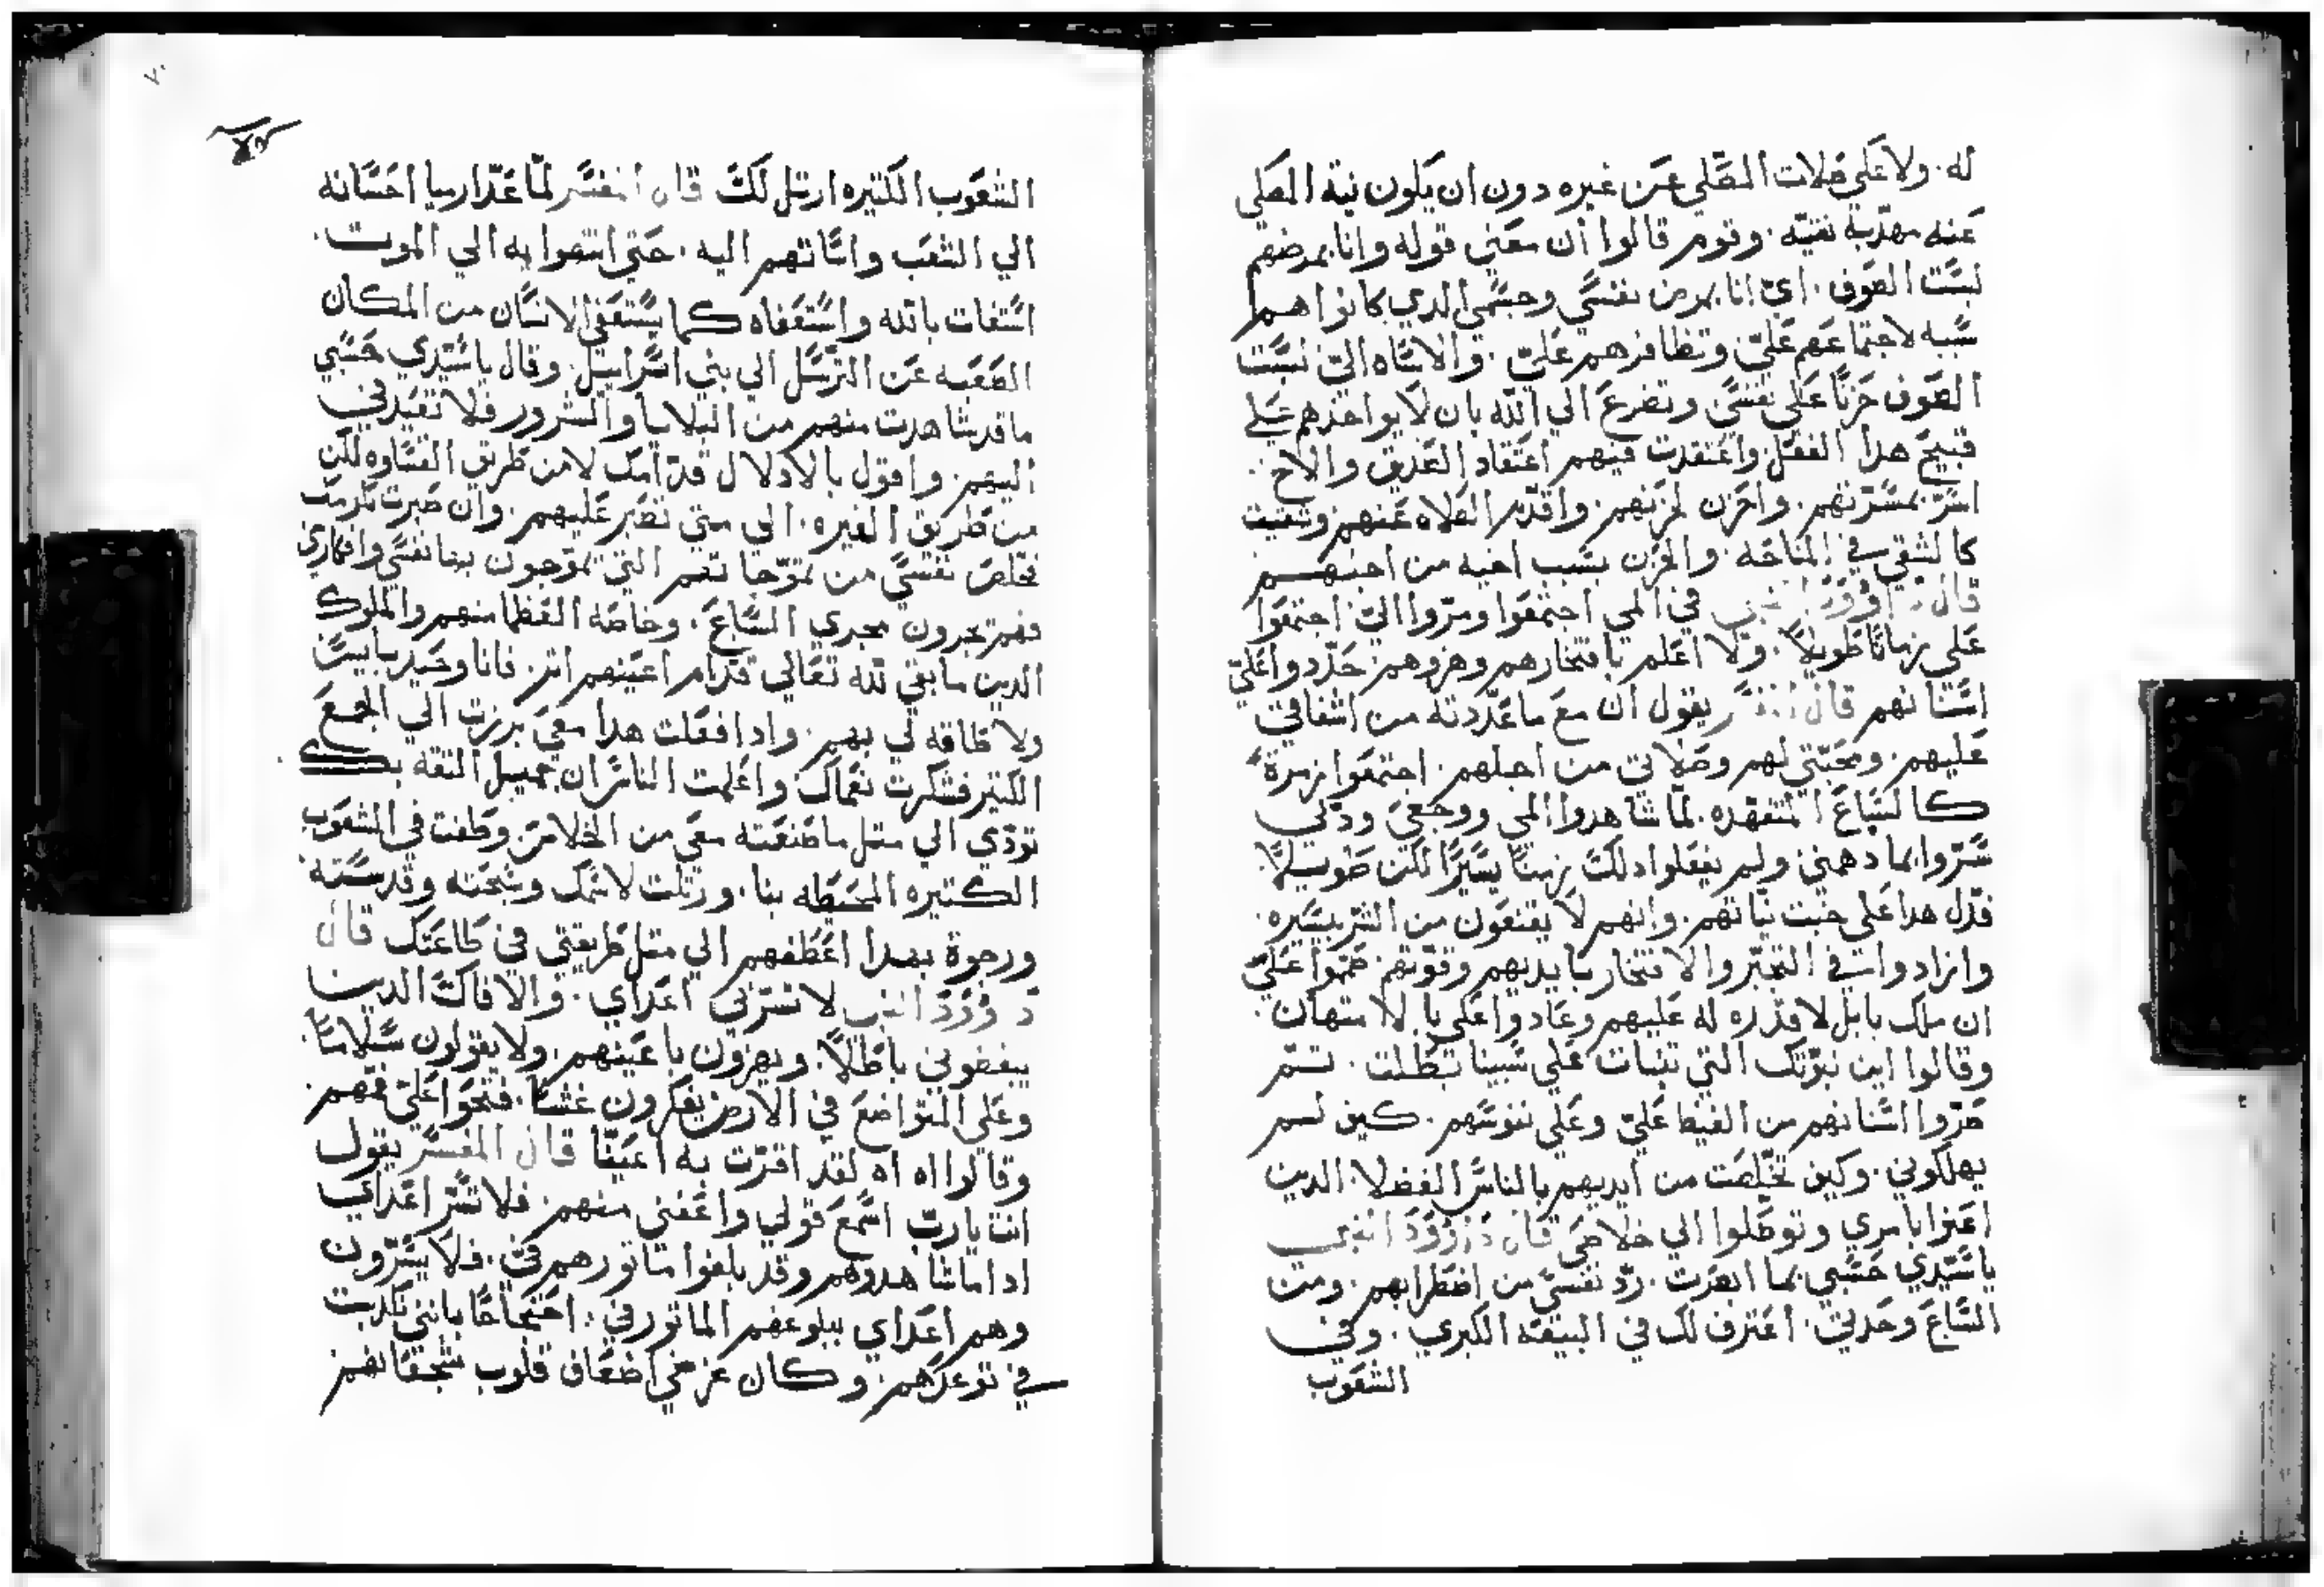 له. ولا علي صلات المصلي عن غيره دون ان يكون نية المصلي
عنه مهدبة نقيه. وقوم قالوا ان معني قوله وانا بمرضهم
لبست الصوف. اي انا بمرض نفسي وجسمي الدي كانوا هم
سببه لاجتماعهم علي وتظافرهم علي. والاساه الي لبست
الصوف حزنًا علي نفسي وتضرع الي الله بان لا يواخدهم علي
قبيح هدا الفعل واعتقدت فيهم اعتقاد الصديق والاخ.
اسر بمسرتهم. واحزن لحزنهم. واقدم الصلاه عنهم وسعيت
كالشقي في المناحه. والحزن بسبب اخيه من اجلهم
قال داوود النبي في المي اجتمعوا ومروا الي اجتمعوا
علي زمانًا طويلًا. ولا اعلم بافتخارهم وهزوهم. حددوا علي
اسنانهم قال المفسر يقول ان مع ما عددته من اشفاقي
عليهم. ومحبتي لهم وصلاتي من اجلهم. اجتمعوا زمرة
كالسباع المتفهده. لما شاهدوا المي ووجعي ودلي
سروا بما دهمني ولم يفعلوا دلك زمنًا يسيرًا لكن طويلًا
فدل هدا علي خبت نياتهم. وانهم لا يقنعون من الشر بيسيره.
وازادوا في التجبر والافتخار بايديهم وقوتهم. ضموا علي
ان ملك بابل لا قدره له عليهم وعادوا علي بالامتهان.
وقالوا اين نبوتك التي تنبات علي سبينا تبطلت. تم
صروا اسنانهم من الغيظ علي وعلي نفوسهم. كيف لم
يهلكوني. وكيف تخلصت من ايديهم بالناس الفضلا الدين
اعتنوا بامري وتوصلوا الي خلاصي قال داوود النبي
يا سيدي حسبي بما ابصرت. رد نفسي من اضطرابهم. ومن
السباع وحدتي. اعترف لك في البيعه الكبري. وفي
الشعوب
الشعوب الكتيره ارتل لك قال المفسر لما عدا ارميا احسانه
الي الشعب واساتهم اليه. حتي انتهوا به الي الموت.
استغات بالله واستعفاه كما يستعفي الانسان من المكان
الصعبه عن الترسل الي بني اسراييل. وقال يا سيدي حسبي
ما قد شاهدت منهم من البلايا والشرور فلا تعيدني
اليهم. واقول بالادلال قدامك لا من طريق القساوه لكن
من طريق الغيره. الي متي تصبر عليهم. وان صبرت لكرمك
فخلص نفسي من تموجاتهم التي يموجون بها نفسي وافكاري
فهم يجرون مجري السباع. وخاصه العظما منهم والملوك
الدين ما بقي لله تعالي قدام اعينهم اتر. فانا وحيد بايس
ولا طاقه لي بهم. وادا فعلت هدا معي برزت الي الجمع
الكتير فشكرت نعماك. واعلمت الناس ان جميل التقه بك
تودي الي متل ما صنعته معي من الخلاص. وطفت في الشعوب
الكتيره المحيطه بنا. ورتلت لاسمك وسبحته وقدسته.
ورجوة بهدا اعطفهم الي متل طريقتي في طاعتك قال
داوود النبي لا تسر بي اعداي. والافاك الدين
يبغضوني باطلًا. ويهزون باعينهم. ولا يقولون سلامًا.
وعلي المتواضع في الارض يفكرون غشًا. فتحوا علي فمهم.
وقالوا اه اه لقد اقرت به اعيننا قال المفسر يقول
انت يا رب اسمع قولي واعفني منهم. فلا تسر اعداي
ادا ما شاهدوهم وقد بلغوا ماتورهم في. فلا يسرون
وهم اعداي ببلوغهم الماتور في. احتجاجًا بانني كدبت
في توعدهم. وكان غرضي اضعاف قلوب شجعانهم